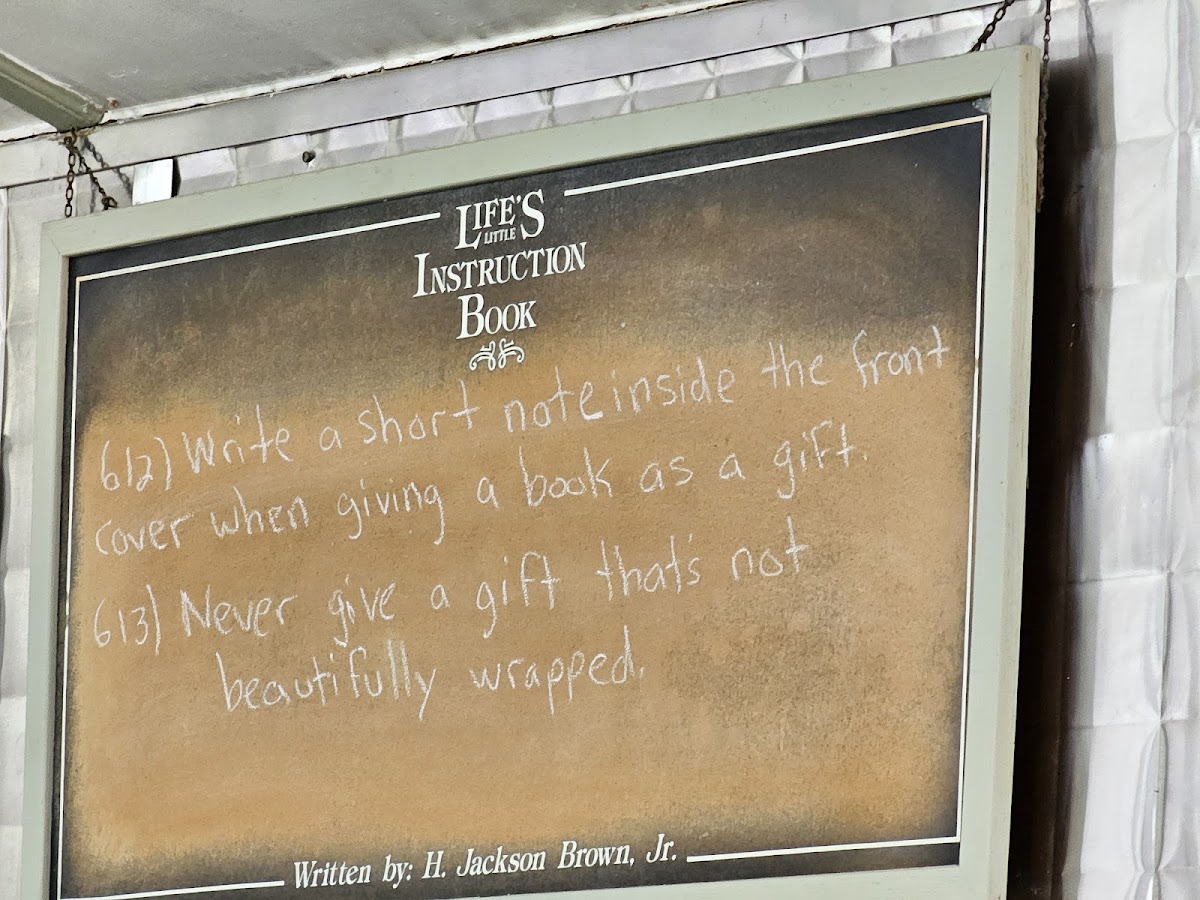 LIFE'S
LITTLE
INSTRUCTION
BOOK
612) Write a short note inside the front
cover when giving a book as a gift.
613) Never give a gift that's not
beautifully wrapped.
Written by: H. Jackson Brown, Jr.